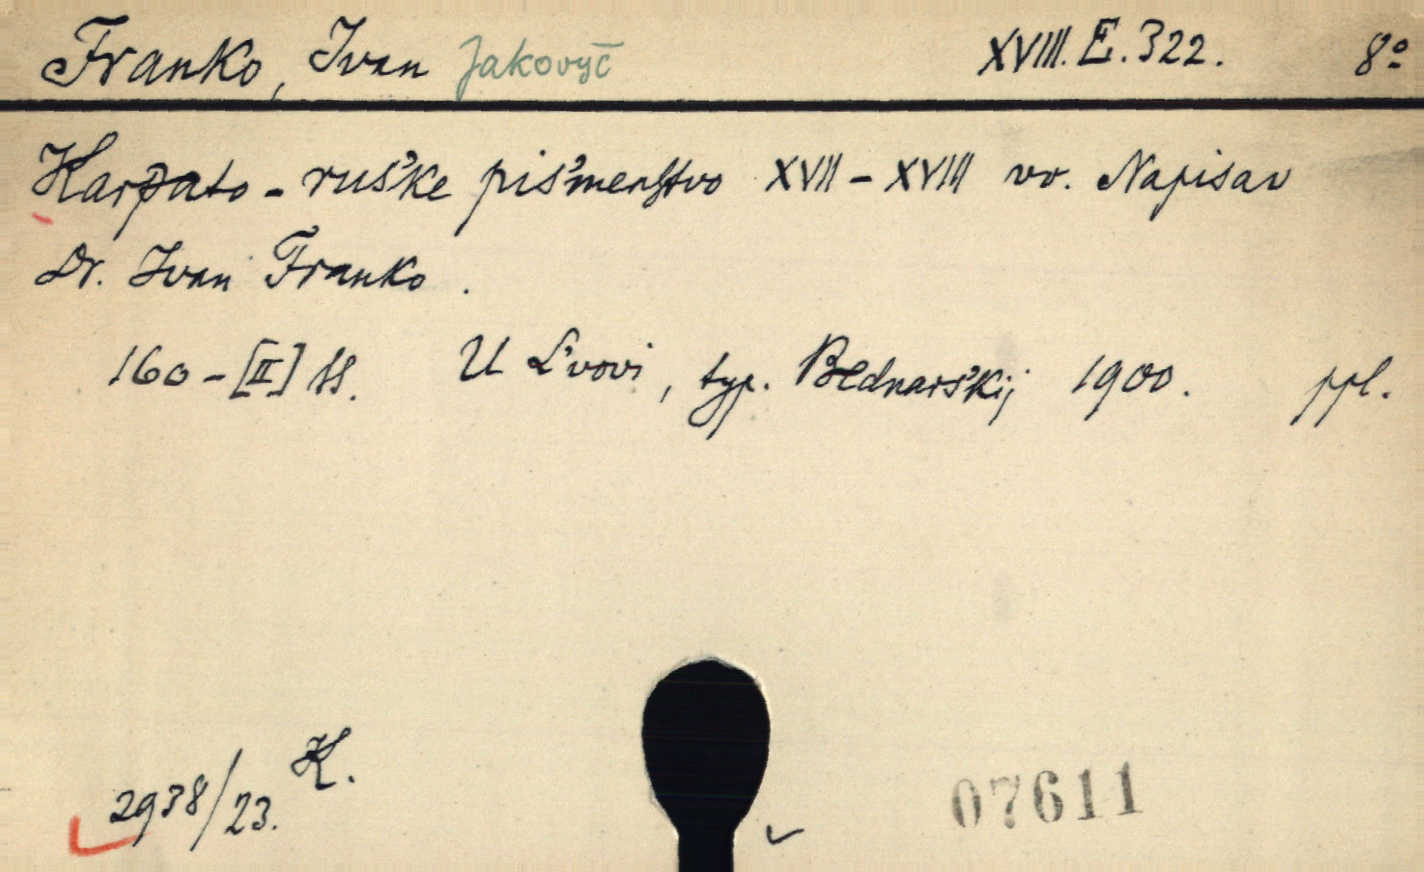 Franko, Ivan Jakovyč XVIII. E. 322. 8º
Karpato-rus'ke pis'menstvo XVII-XVIII vv. Napisav
Dr. Ivan Franko.
160-[II] SS. U L'vovi, typ. Bednars'kij 1900. ppl.
2938/23. K.
07611